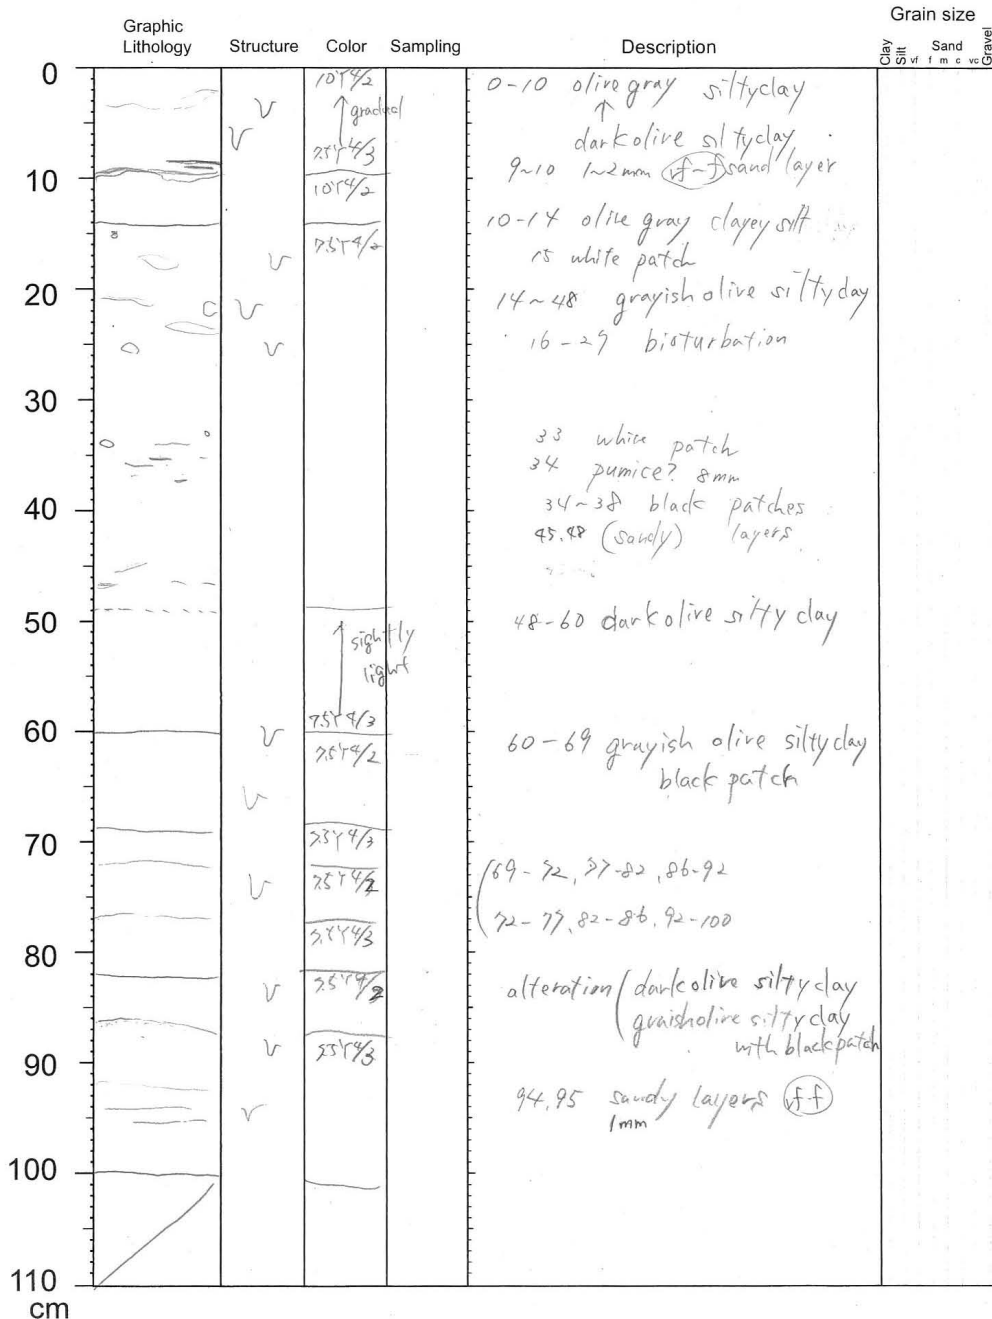 Graphic Lithology
Structure
Color
Sampling
Description
Grain size
Clay
Silt
vf
f
m
c
vc
Sand
Gravel
0
10
20
30
40
50
60
70
80
90
100
110
cm
10Y4/2
gradual
7.5Y4/3
10Y4/2
7.5Y4/2
sightly
light
7.5Y4/3
7.5Y4/2
7.5Y4/3
7.5Y4/2
7.5Y4/3
7.5Y4/2
7.5Y4/3
0-10 olive gray siltyclay
darkolive siltyclay
9~10 1~2mm vf~f sand layer
10-14 olive gray clayey silt
15 white patch
14~48 grayish olive silty clay
16-29 bioturbation
33 white patch
34 pumice? 8mm
34~38 black patches
45.48 (sandy) layers
48-60 darkolive silty clay
60-69 grayish olive siltyclay
black patch
69-72, 77-82, 86-92
72-77, 82-86, 92-100
alteration darkolive siltyclay
graisholive siltyclay
with blackpatch
94.95 sandy layers vf-f
1mm